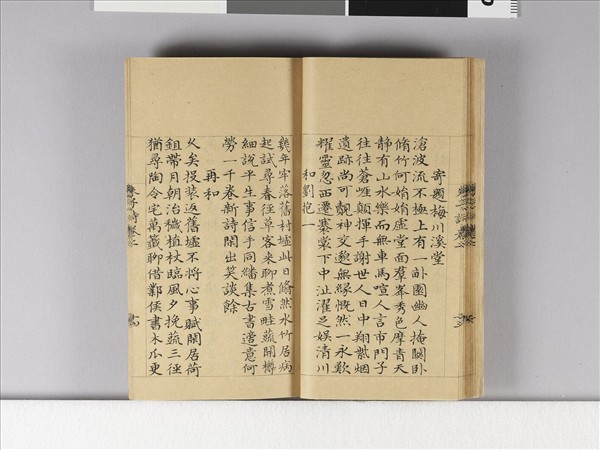 寄題梅川溪堂
滄波流不極上有一畝園幽人掩關卧
脩竹何娟娟虛堂面羣峯秀色摩青天
静有山水樂而無車馬喧人言市門子
往往蒼崖顛揮手謝世人日中翔紫烟
遺跡尚可覿神交邈無緣慨然一永歎
耀靈忽西遷褰裳下中沚濯足娱清川
和劉抱一
幾年牢落舊村墟此日翛然水竹居病
起試尋春徑草客來聊煮雪畦蔬開樽
細說平生事信手同繙集古書遣意何
勞一千卷新詩開出笑談餘
再和
久矣投裝返舊墟不將心事賦閒居荷
鉏帶月朝治穢植杖臨風夕挽蔬三徑
猶尋陶令宅萬籤聊借鄴侯書木瓜更